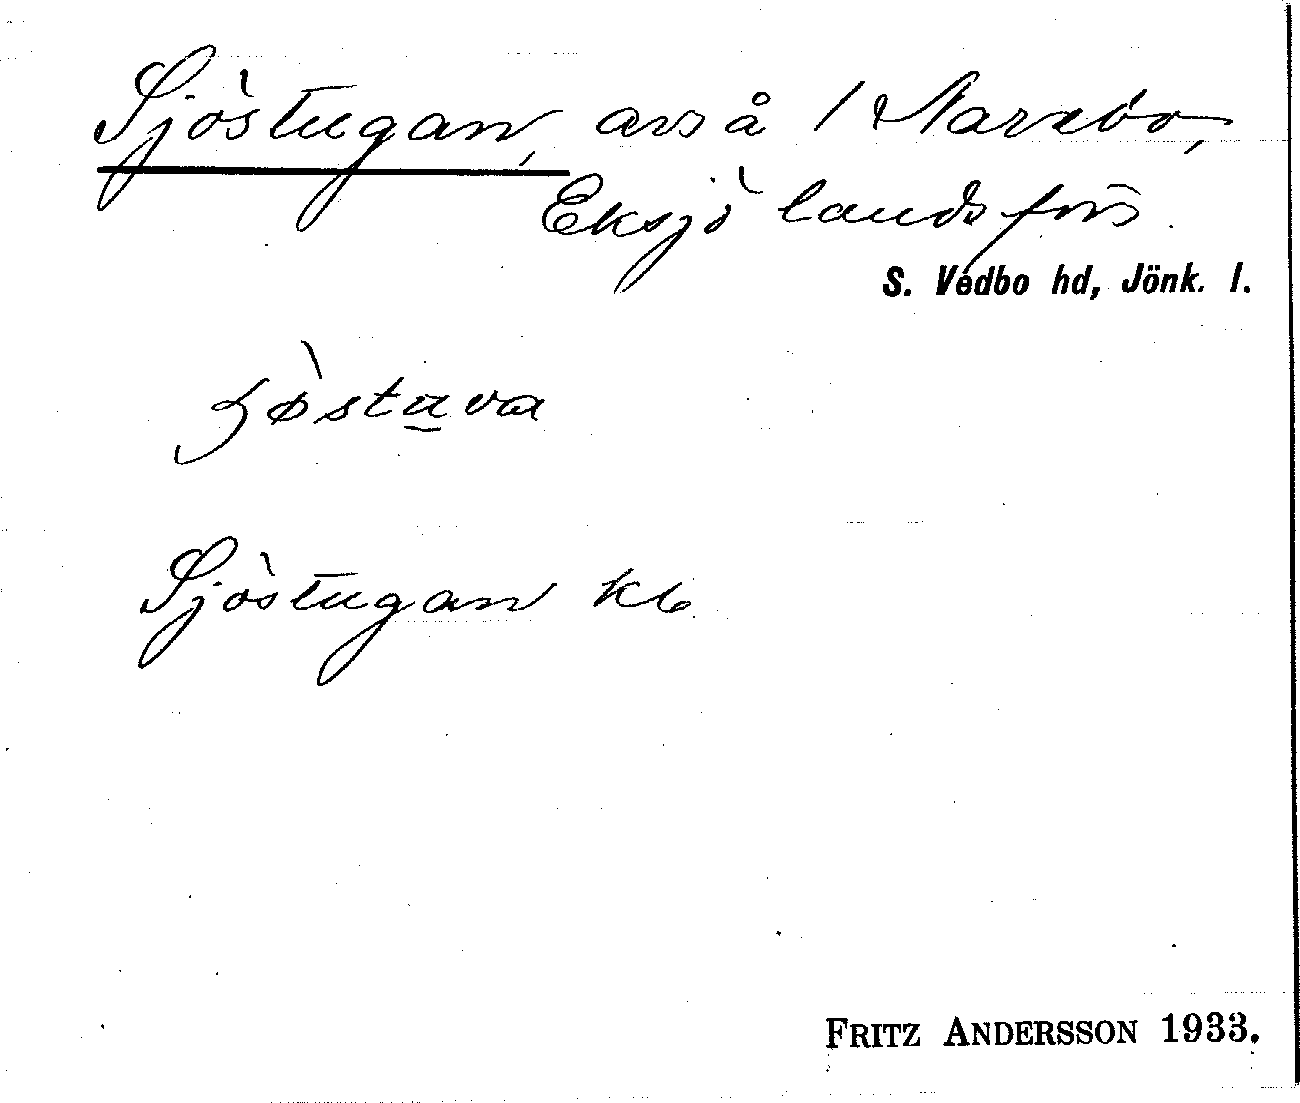 Sjöstugan, avs å 1 Narebo,
Eksjö landsförs.
S. Vedbo hd, Jönk. l.
Sjöstugan kb
FRITZ ANDERSSON 1933.